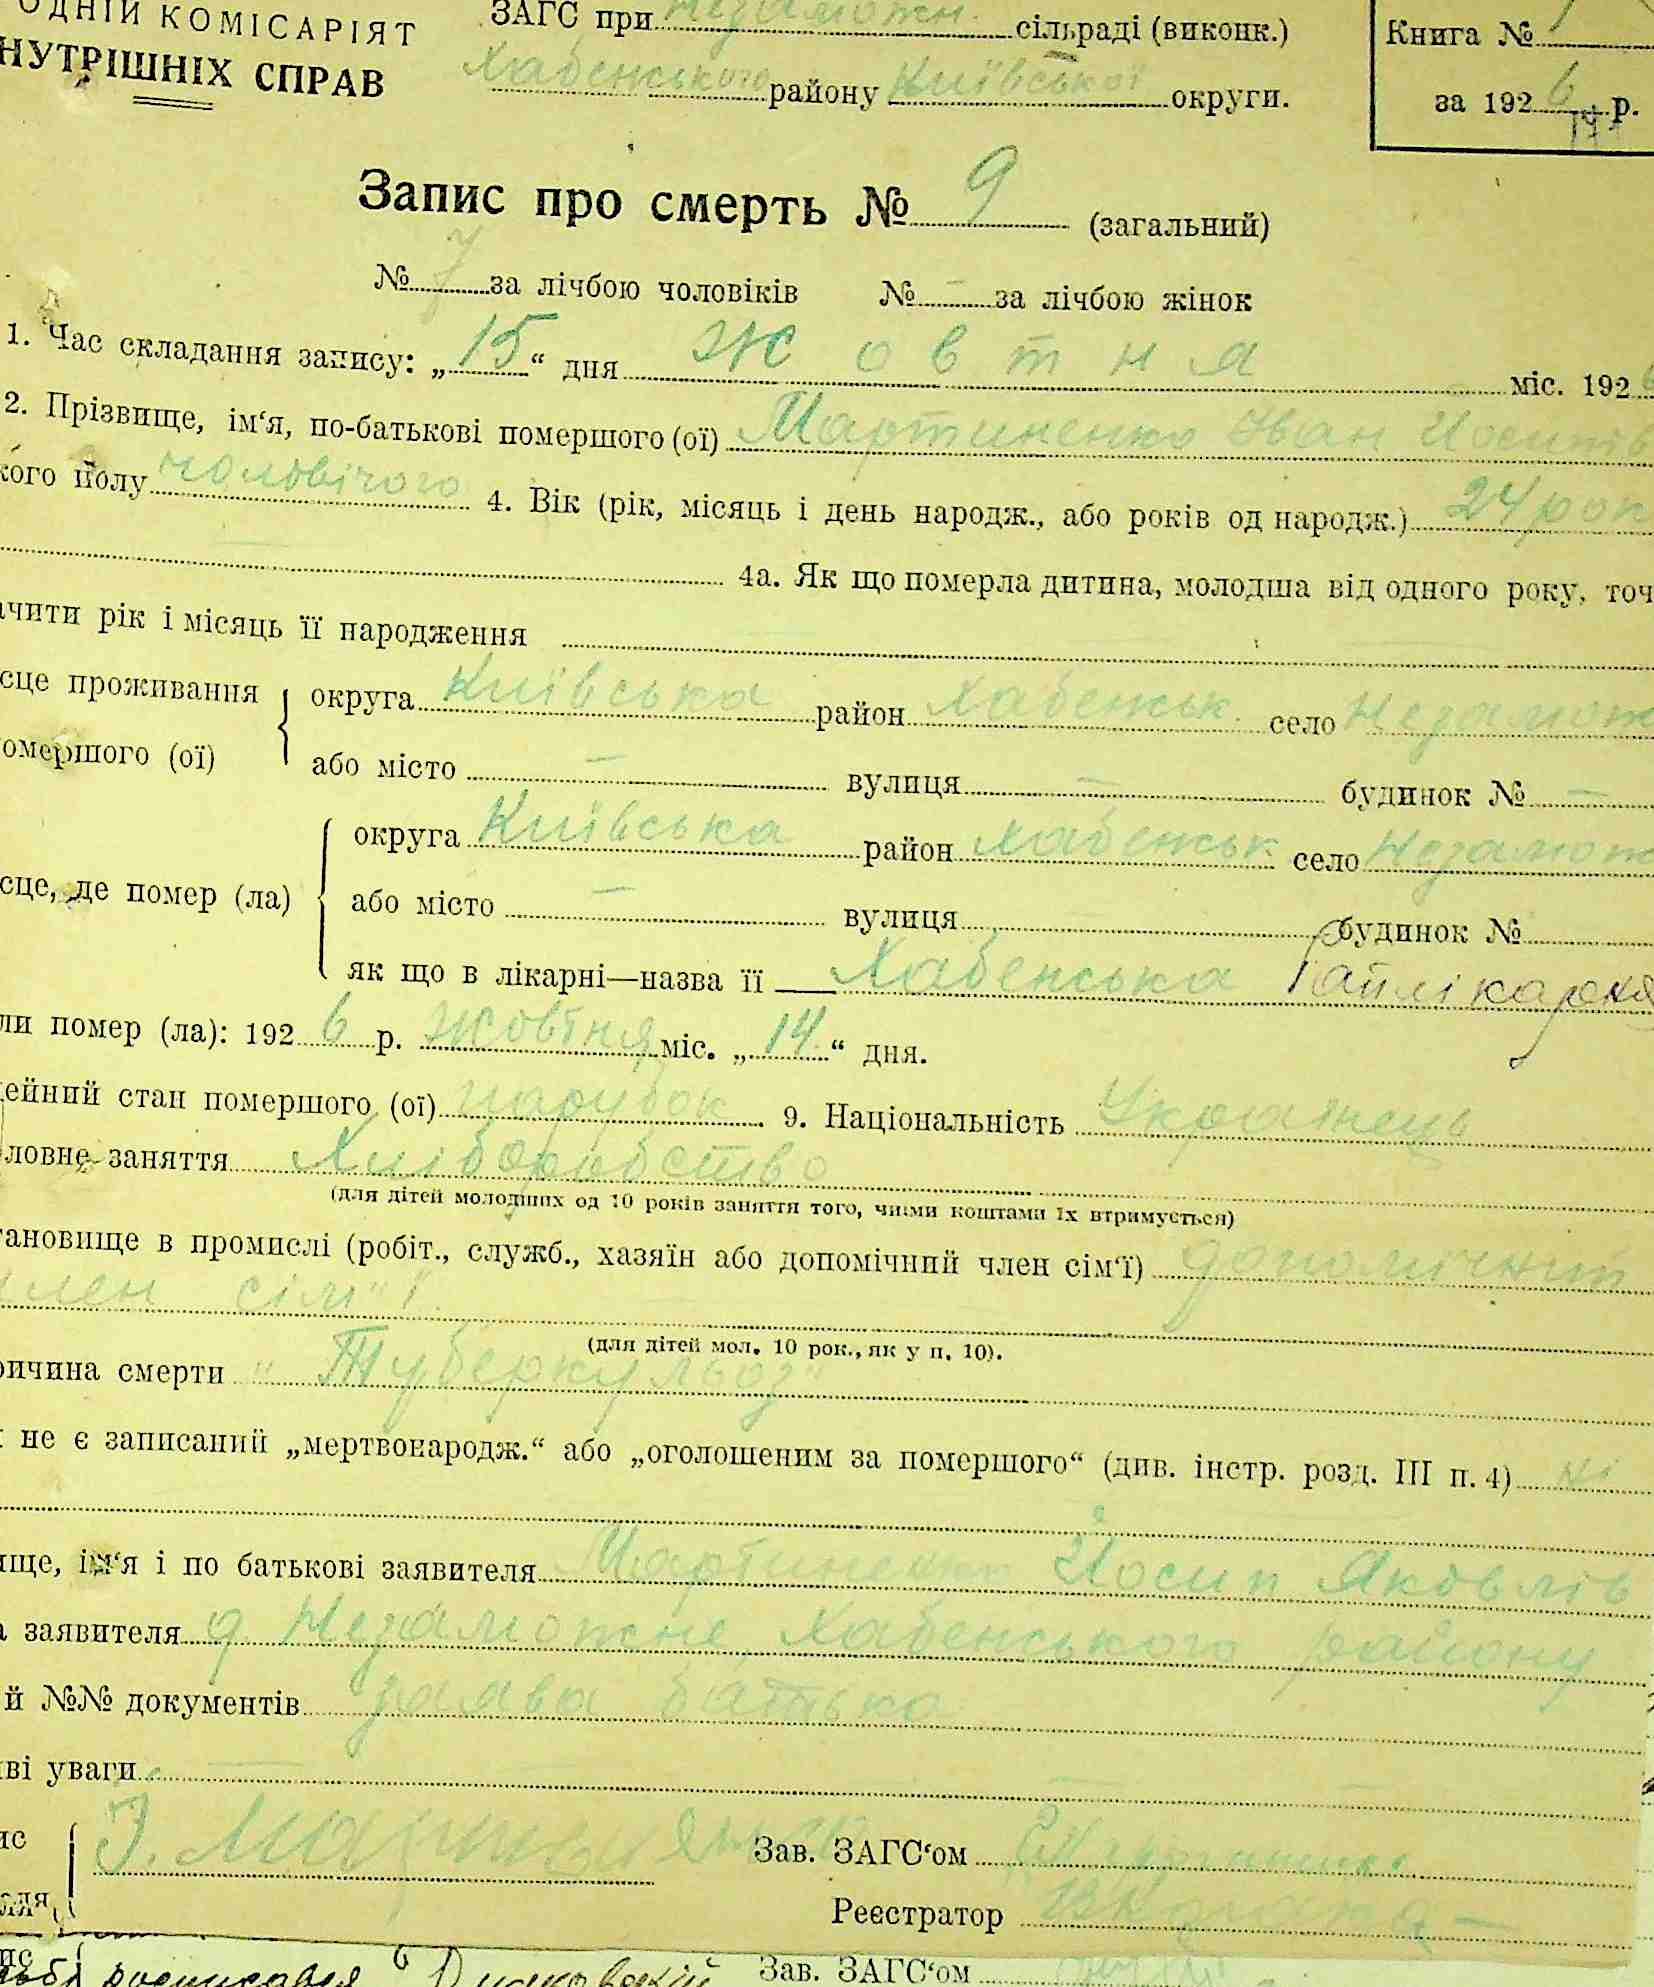 ОДНІЙ КОМІСАРІЯТ
НУТРІШНІХ СПРАВ
ЗАГС при Незаможн. сільраді (виконк.)
Хабенського району Київської округи.
Книга № 1
за 1926 р.
Запис про смерть № 9 (загальний)
№ 7 за лічбою чоловіків № — за лічбою жінок
1. Час складання запису: „15“ дня Жовтня міс. 1926
2. Прізвище, ім‘я, по-батькові помершого (ої) Мартиненко Іван Йосипів
кого полу чоловічого 4. Вік (рік, місяць і день народж., або років од народж.) 24 рок
4а. Як що померла дитина, молодша від одного року, точ
ачити рік і місяць її народження
сце проживання округа Київська район Хабенськ. село Незамож
омершого (ої) або місто — вулиця — будинок № —
округа Київська район Хабенськ село Незамож
сце, де помер (ла) або місто — вулиця будинок №
як що в лікарні—назва її Хабенська Райлікарня
ли помер (ла): 1926 р. Жовтня міс. „14“ дня.
дейний стан помершого (ої) парубок. 9. Національність Українець
ловне заняття Хліборобство
(для дітей молодших од 10 років заняття того, чиїми коштами їх втримується)
тановище в промислі (робіт., служб., хазяїн або допомічний член сім‘ї) допомічний
член сім"ї.
(для дітей мол. 10 рок., як у п. 10).
ричина смерти "Туберкульоз"
не є записаний „мертвонародж.“ або „оголошеним за помершого“ (див. інстр. розд. III п. 4) ні
ище, ім‘я і по батькові заявителя Мартиненко Йосип Яковлів
а заявителя с Незаможне Хабенського району
й №№ документів заява батька
ві уваги
ис І. Мартиненко Зав. ЗАГС‘ом
ля Реєстратор
ис Зав. ЗАГС‘ом